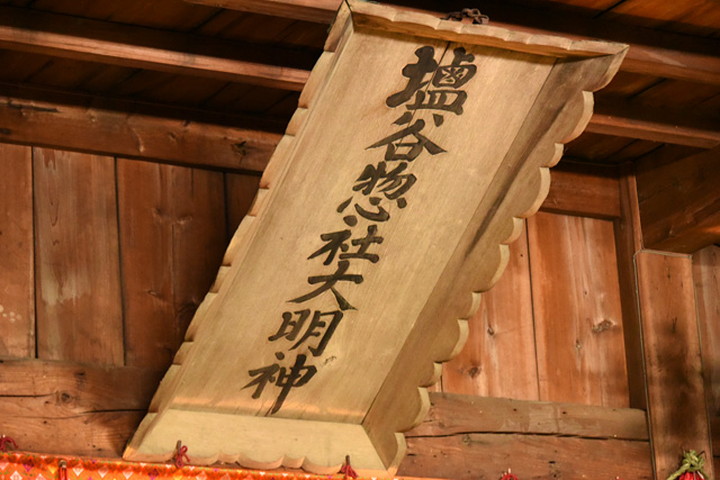 塩谷惣社大明神